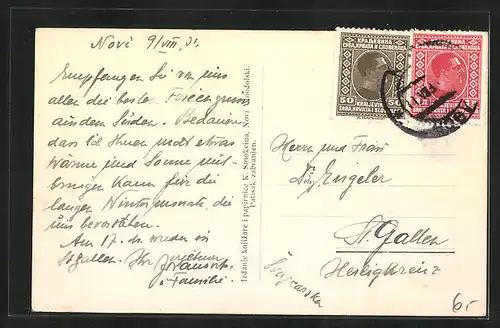 Novi 9/VIII. 31.
Empfangen Sie von uns
allen die besten Feriengrüsse
aus dem Süden. Bedaure,
dass ich Ihnen nicht etwas
Wärme und Sonne mit-
bringen kann für die
langen Wintermonate, die
uns bevorstehen.
Am 17. ds. werden in
St. Gallen. Ihr
& Familie.
Izdanje knjižare i papirnice K. Somolevina, Novi Vinodolski.
Patisak zabranjen.
КРАЉЕВИНА
СРБА, ХРВАТА И СЛОВЕНАЦА
50 50
KRALJEVINA
SRBA, HRVATA I SLOVENACA
КРАЉЕВИНА
СРБА, ХРВАТА И СЛОВЕНАЦА
Herrn und Frau
Engeler
St. Gallen
Heiligkreuz
Švajcarska
6.-